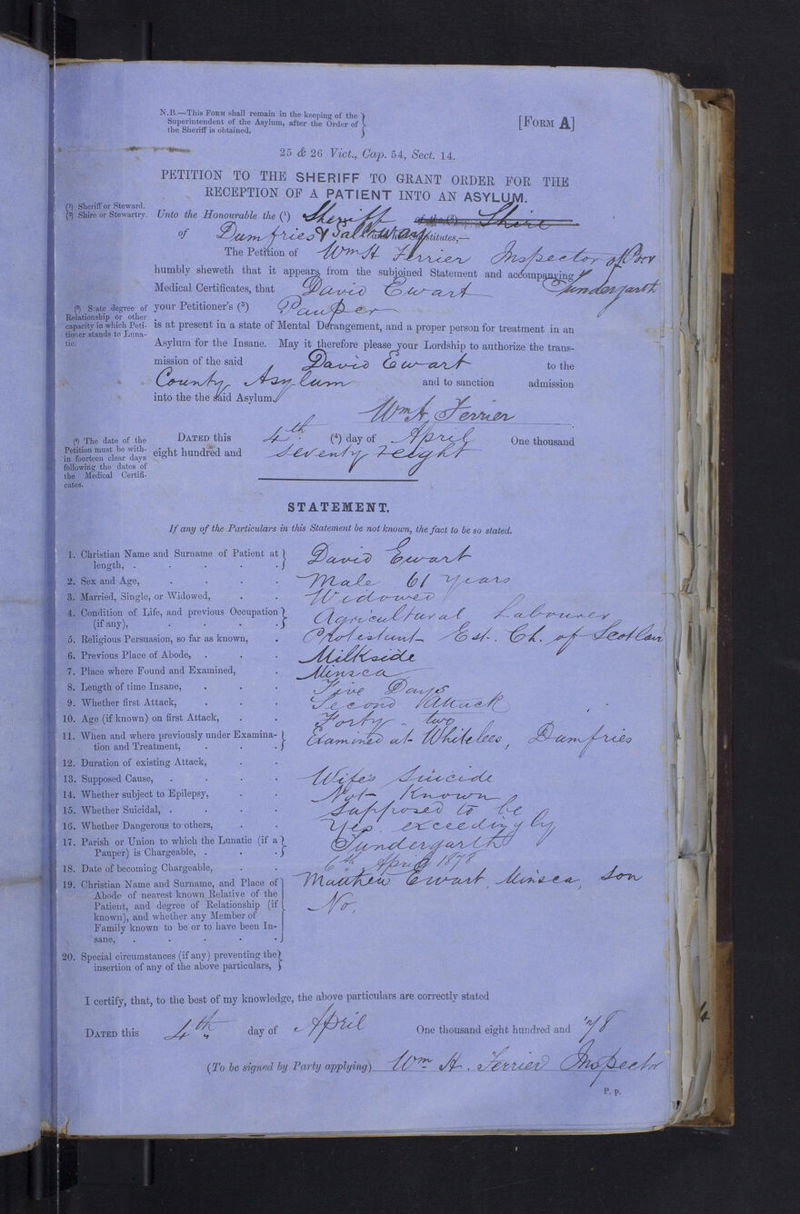 N.B.—This Form shall remain in the keeping of the
Superintendent of the Asylum, after the Order of
the Sheriff is obtained.
[Form A]
25 & 26 Vict., Cap. 54, Sect. 14.
PETITION TO THE SHERIFF TO GRANT ORDER FOR THE
RECEPTION OF A PATIENT INTO AN ASYLUM.
(1) Sheriff or Steward.
(2) Shire or Stewartry.
Unto the Honourable the (1) Sheriff of the (2) Shire
of Dumfries & Galloway
The Petition of Wm H Ferrier Inspector of Poor
humbly sheweth that it appears from the subjoined Statement and accompanying Tundergarth
Medical Certificates, that David Ewart
(3) State degree of
Relationship or other
capacity in which Peti-
tioner stands to Luna-
tic.
your Petitioner's (3) Pauper
is at present in a state of Mental Derangement, and a proper person for treatment in an
Asylum for the Insane. May it therefore please your Lordship to authorize the trans-
mission of the said David Ewart to the
County Asylum and to sanction admission
into the the said Asylum.
Wm H. Ferrier
(4) The date of the
Petition must be with-
in fourteen clear days
following the dates of
the Medical Certifi-
cates.
Dated this 4th (4) day of April One thousand
eight hundred and Seventy eight
STATEMENT.
If any of the Particulars in this Statement be not known, the fact to be so stated.
1. Christian Name and Surname of Patient at
length, . . . . . David Ewart
2. Sex and Age, . . . . Male 61 years
3. Married, Single, or Widowed, . . Widowed
4. Condition of Life, and previous Occupation
(if any), . . . . Agricultural Labourer
5. Religious Persuasion, so far as known, . Protestant Est. Ch. of Scotlan
6. Previous Place of Abode, . . . Milkside
7. Place where Found and Examined, . Minsca
8. Length of time Insane, . . . Five Days
9. Whether first Attack, . . . Second Attack
10. Age (if known) on first Attack, . . Forty - two
11. When and where previously under Examina-
tion and Treatment, . . . Examined at Whitelees, Dumfries
12. Duration of existing Attack, . .
13. Supposed Cause, . . . . Wife's Suicide
14. Whether subject to Epilepsy, . . Not Known
15. Whether Suicidal, . . . . Supposed to be
16. Whether Dangerous to others, . . Yes. exceedingly
17. Parish or Union to which the Lunatic (if a
Pauper) is Chargeable, . . . Tundergarth
18. Date of becoming Chargeable, . . 6th April 1878
19. Christian Name and Surname, and Place of Matthew Ewart, Minsca, Son
Abode of nearest known Relative of the
Patient, and degree of Relationship (if No.
known), and whether any Member of
Family known to be or to have been In-
sane, . . . . .
20. Special circumstances (if any) preventing the
insertion of any of the above particulars,
I certify, that, to the best of my knowledge, the above particulars are correctly stated
Dated this 4th day of April One thousand eight hundred and '78
(To be signed by Party applying) Wm H. Ferrier Inspector
P. p.